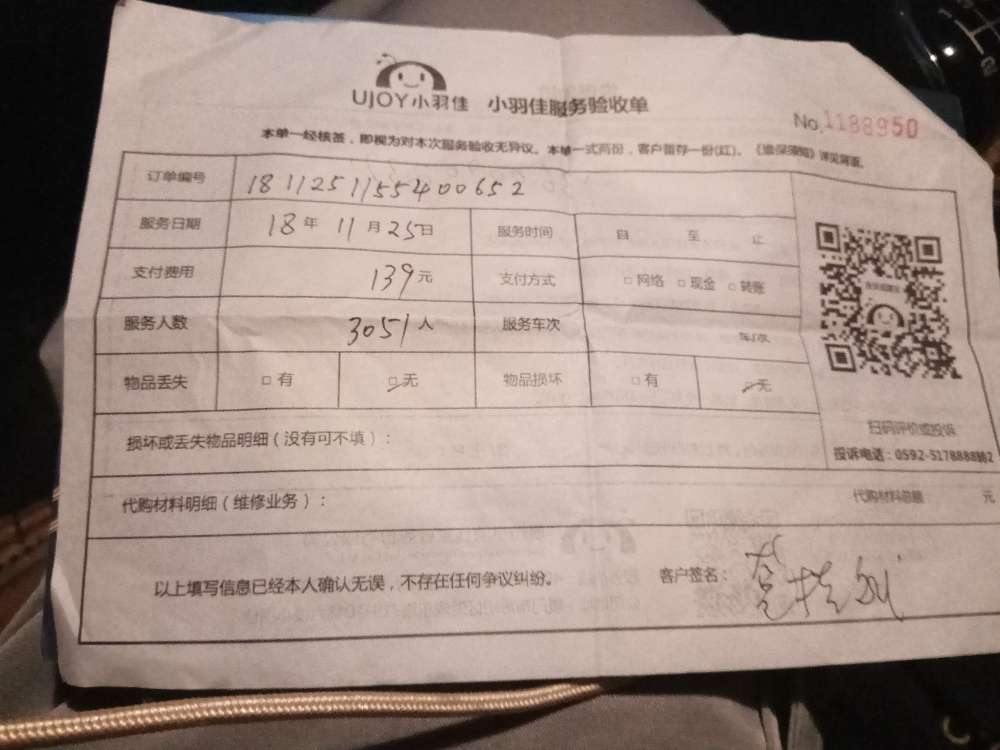 UJOY小羽佳 小羽佳服务验收单
No.1188950
本单一经核签，即视为对本次服务验收无异议。本单一式两份，客户留存一份(红)。《维保须知》详见背面。
订单编号 1811251155400652
服务日期 18年 11月25日 服务时间 自 至 止
支付费用 139元 支付方式 □网络 □现金 □转账
服务人数 3051人 服务车次 车/次
物品丢失 □有 □无 物品损坏 □有 □无
扫码评价或投诉
损坏或丢失物品明细（没有可不填）：
投诉电话：0592-5178888转2
代购材料明细（维修业务）： 代购材料总额 元
以上填写信息已经本人确认无误，不存在任何争议纠纷。 客户签名：